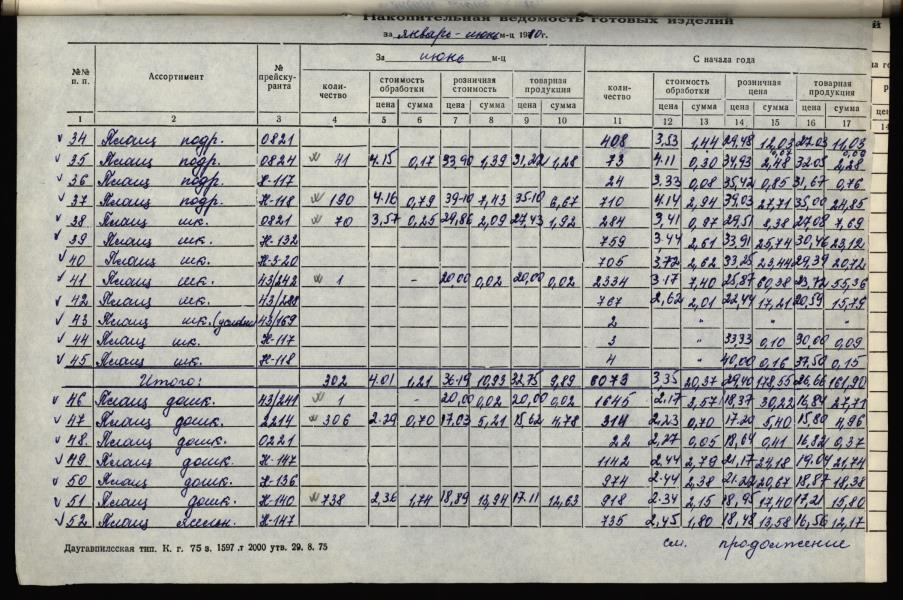 Накопительная ведомость готовых изделий
за январь-июнь м-ц 1980г.
№№ п. п. Ассортимент № прейскуранта За июнь м-ц С начала года
количество стоимость обработки розничная стоимость товарная продукция количество стоимость обработки розничная цена товарная продукция
цена сумма цена сумма цена сумма цена сумма цена сумма цена сумма
1 2 3 4 5 6 7 8 9 10 11 12 13 14 15 16 17
34 Плащ подр. 0821 408 3,53 1,44 29,48 12,03 27.03 11,03
35 Плащ подр. 0824 41 4.15 0,17 33,90 1,39 31,22 1,28 73 4.11 0,30 34,93 2,48 32.05 2,28
36 Плащ подр. Н-117 24 3.33 0,08 35,42 0,85 31,67 0,76
37 Плащ подр. Н-118 190 4.16 0,79 39-10 7,43 35-10 6,67 710 4.14 2,94 39,03 27,71 35,00 24,85
38 Плащ шк. 0821 70 3,57 0,25 29,86 2,09 27,43 1,92 284 3,41 0,97 29,51 8,38 27,08 7,69
39 Плащ шк. Н-132 759 3.44 2,61 33,91 25,74 30,46 23,12
40 Плащ шк. Н-3-20 705 3,72 2,62 33,25 23,44 29,39 20,72
41 Плащ шк. 43/242 1 - 20,00 0,02 20,00 0,02 2334 3.17 7,40 25,87 60,38 23,72 55,36
42 Плащ шк. 43/288 767 2,62 2,01 22,44 17,21 20,59 15,79
43 Плащ шк. 43/169 2 " " "
44 Плащ шк. Н-117 3 " 33,33 0,10 30,00 0,09
45 Плащ шк. Н-118 4 " 40,00 0,16 37,50 0,15
Итого: 302 4.01 1,21 36-19 10,93 32.75 9,89 6073 3.35 20,37 29,40 178,55 26,66 161,90
46 Плащ дошк. 43/241 1 - 20,00 0,02 20,00 0,02 1645 2.17 3,57 18,37 30,22 16,84 27,71
47 Плащ дошк. 2214 306 2.29 0,70 17,03 5,21 15,62 4,78 314 2,23 0,70 17.20 5,40 15,80 4,96
48 Плащ дошк. 0221 22 2,27 0,05 18,64 0,41 16,82 0,37
49 Плащ дошк. Н-147 1142 2.44 2,79 21,17 24,18 19.04 21,74
50 Плащ дошк. Н-136 974 2.44 2,38 21.22 20,67 18,87 18,38
51 Плащ дошк. Н-140 738 2.36 1,74 18,89 13,94 17.11 12,63 918 2.34 2,15 18,95 17,40 17,21 15,80
52 Плащ Н-147 735 2,45 1,80 18,48 13,58 16,56 12,17
Даугавпилсская тип. К. г. 75 з. 1597 .т 2000 утв. 29. 8. 75
см. продолжение